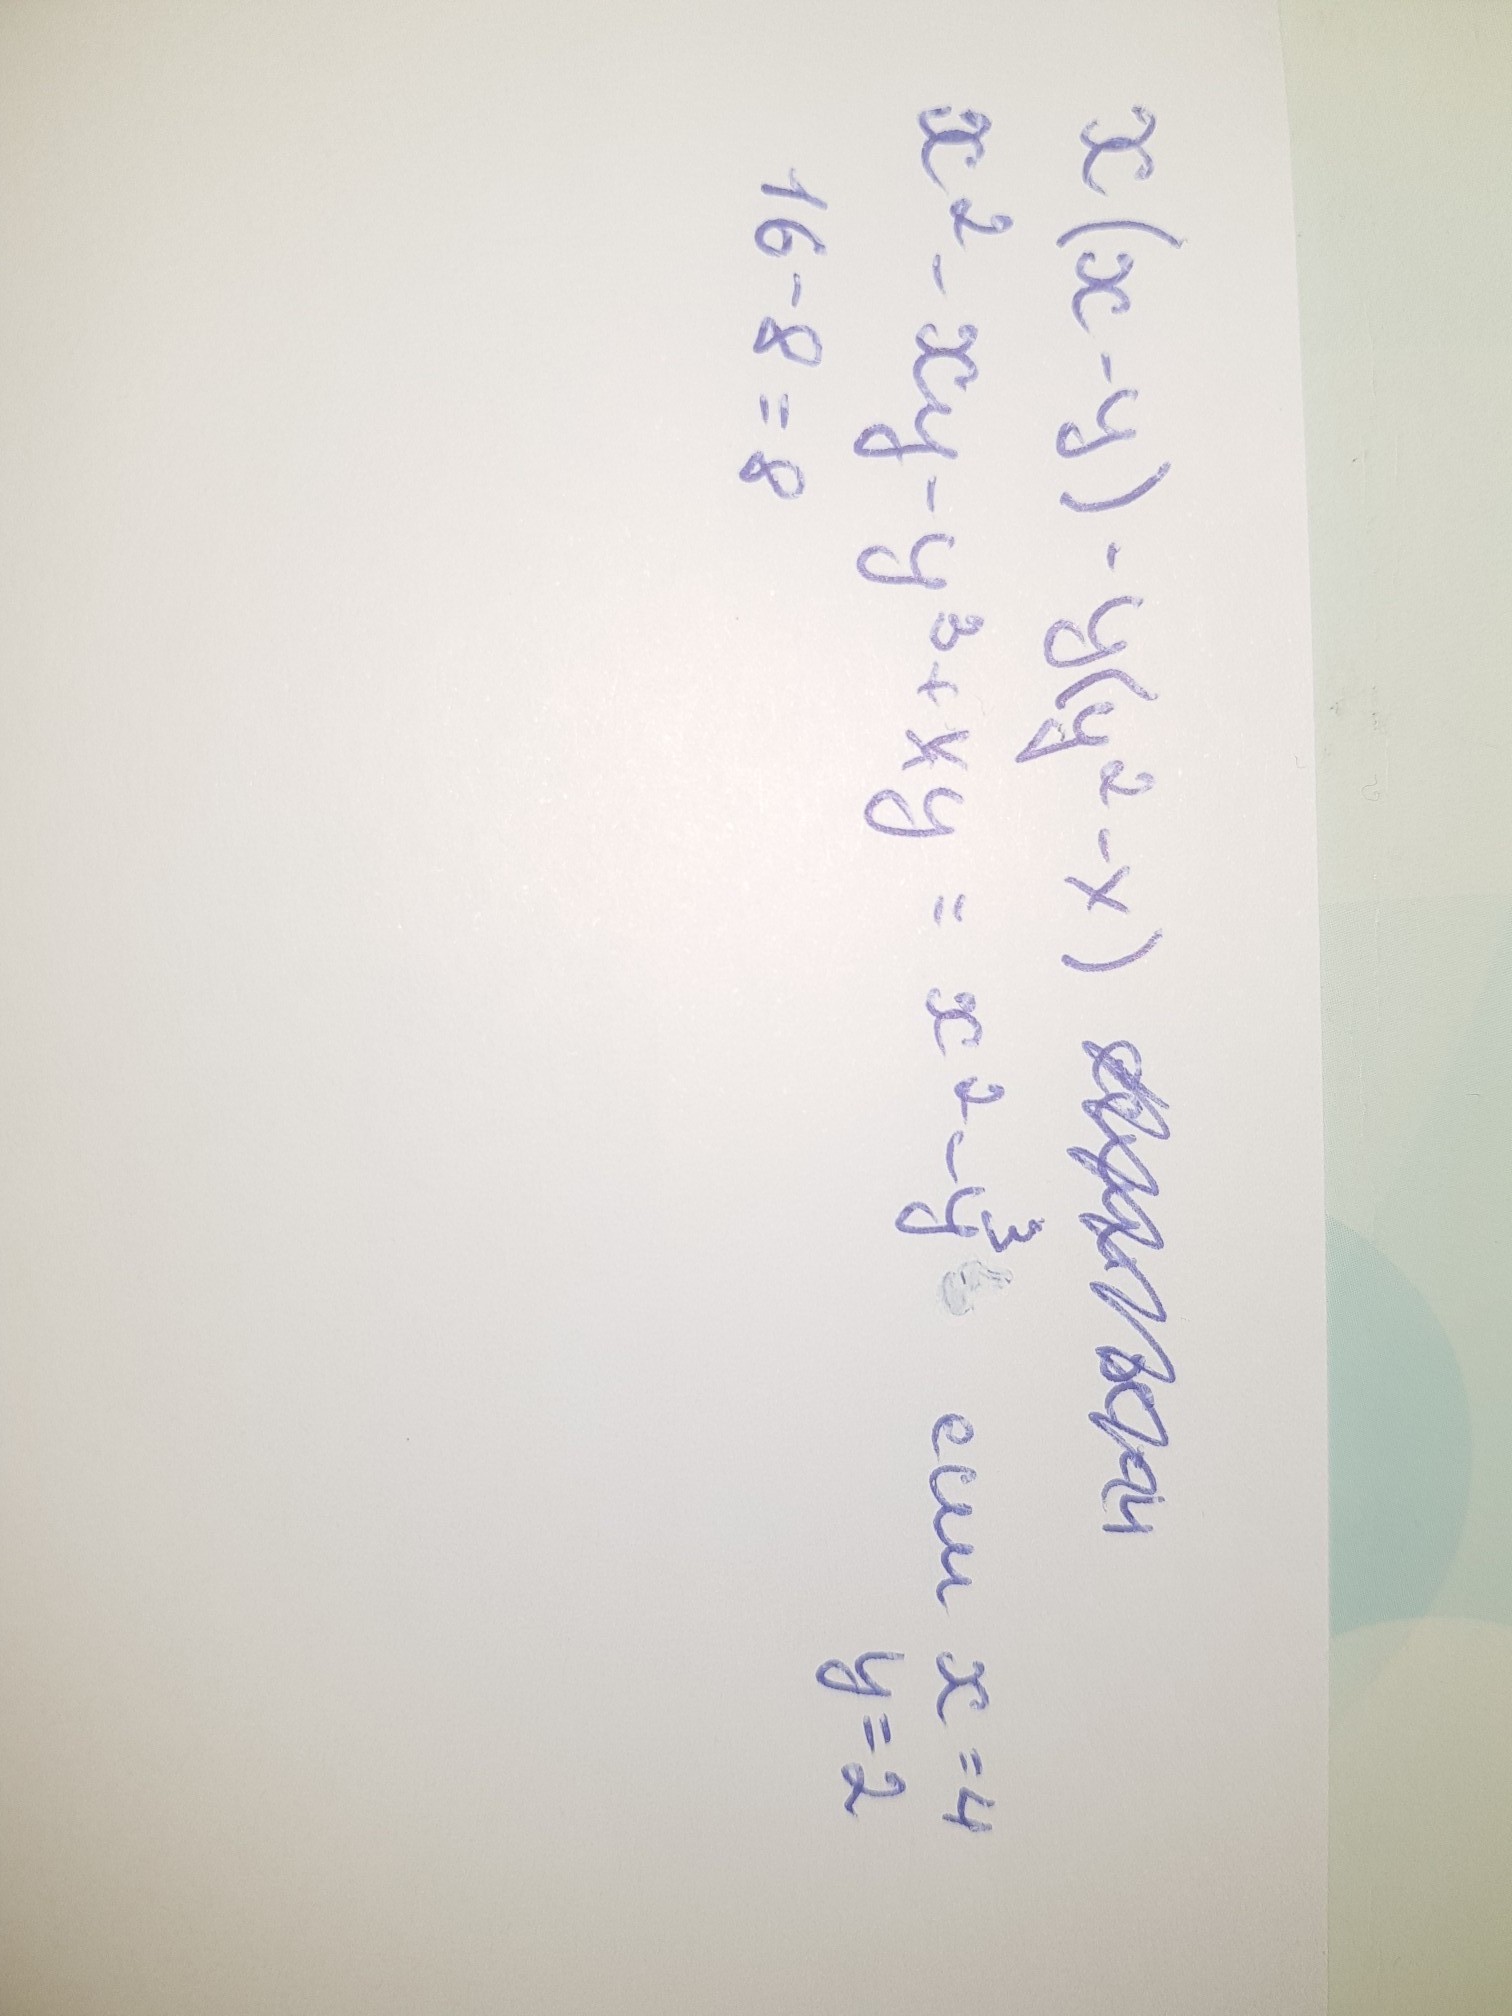 x(x-y)-y(y²-x)
x²-xy-y³+xy = x²-y³ если x=4
y=2
16-8=8